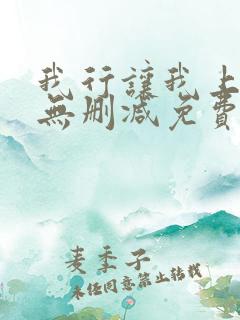 我行讓我上
無刪减免費
麦季子
未经同意禁止转载